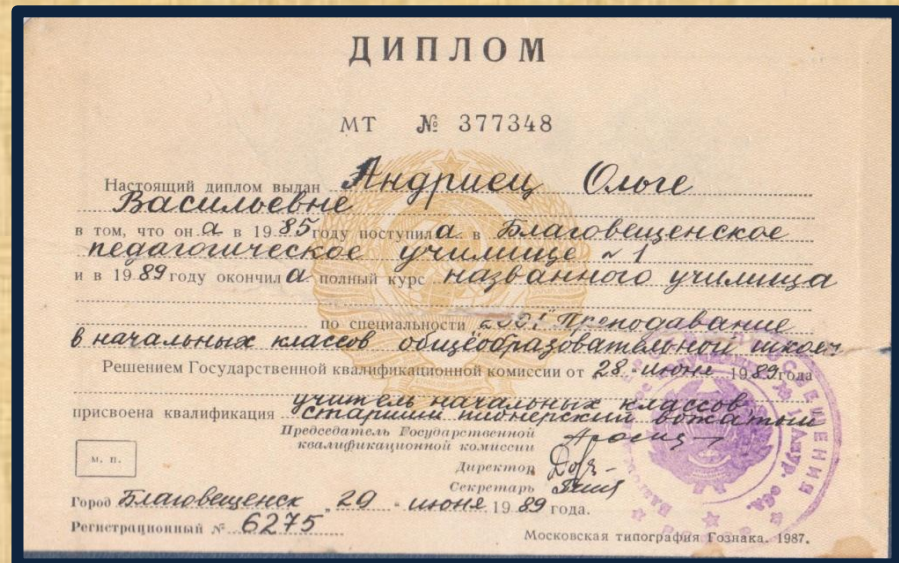 ДИПЛОМ
МТ № 377348
Настоящий диплом выдан Андриец Ольге
Васильевне
в том, что она в 1985 году поступила в Благовещенское
педагогическое училище №1
и в 1989 году окончила полный курс названного училища
по специальности 2001 Преподавание
в начальных классов общеобразовательной школы
Решением Государственной квалификационной комиссии от 28 - июня 1989 года
учитель начальных классов
присвоена квалификация старший пионерский вожатый
Председатель Государственной
квалификационной комиссии
м. п.
Директор
Секретарь
Город Благовещенск 29 - июня 1989 года.
Регистрационный № 6275
Московская типография Гознака. 1987.